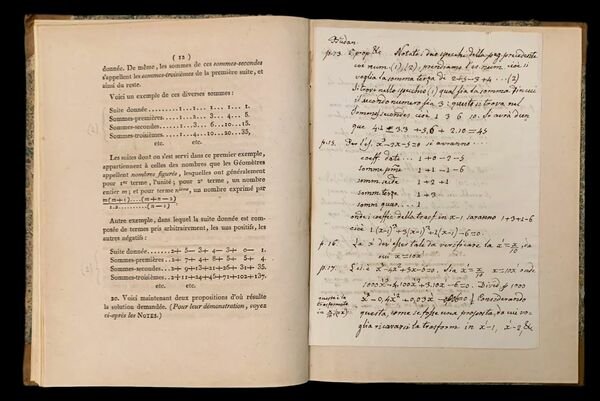 ( 12 )
donnée. De même, les sommes de ces sommes-secondes
s'appellent les sommes-troisièmes de la première suite, et
ainsi du reste.
Voici un exemple de ces diverses sommes:
Suite donnée..........1... 1... 1... 1... 1.
Sommes-premières........1... 2... 3... 4... 5.
Sommes-secondes.......1... 3... 6...10...15.
Sommes-troisièmes......1... 4...10...20...35,
etc. etc.
Les suites dont on s'est servi dans ce premier exemple,
appartiennent à celles des nombres que les Géomètres
appellent nombres figurés, lesquelles ont généralement
pour 1er terme, l'unité; pour 2e terme, un nombre
entier m; et pour terme nième, un nombre exprimé par
m(m+1)....(m+n-2)
1.2........(n-1)
Autre exemple, dans lequel la suite donnée est com-
posée de termes pris arbitrairement, les uns positifs, les
autres négatifs:
Suite donnée......2+ 5- 3+ 4- 3+ 0- 1.
Sommes-premières...2+ 7+ 4+ 8+ 5+ 5+ 4.
Sommes-secondes....2+ 9+13+21+26+31+ 35.
Sommes-troisièmes...2+11+24+45+71+102+137.
etc. etc.
20. Voici maintenant deux propositions d'où résulte
la solution demandée. (Pour leur démonstration, voyez
ci-après les NOTES.)
Budan.
p. 13. Notate i due specchi della pag. precedente
coi num. (1), (2), prendiamo l'es. num. cioè si
voglia la somma terza di 2+5-3+4...(2)
si trovi nello specchio (1) qual sia la somma in cui
il secondo numero sia 3; questo si trova nel
Somme seconde, cioè 1 3 6 10. Se avrà dun
que 4.1 3.3 + 5.6 + 2.10 = 45
p. 15. Per l'es. x³-2x-5=0 si avranno
coeff. date ... 1+0-2-5
somm. pme 1+1-1-6
somm. sede 1+2+1
somm. terze 1+3
somm. quar. ... 1
onde i coeffi della trasf. in x-1 saranno 1+3+1-6
cioè 1(x-1)³+3(x-1)²+1(x-1)-6=0.
p. 16. La x' dev'esser tale da verificare la x'=x/10, da
cui x=10x'
p. 17. Sia x³-4x²+3x-6=0. Sia x'=x/10 x=10x' onde
1000x'³-4.100x'²+3.10x'-6=0. Divid. p 1000
questa è la
trasformata
in x/10 (px)
x'³-0,4x'²+0,03x'-0,006=0 Considerando
questa, come se fosse una proposta, da cui vo-
glia ricavarsi la trasform. in x'-1, x'-2, &c